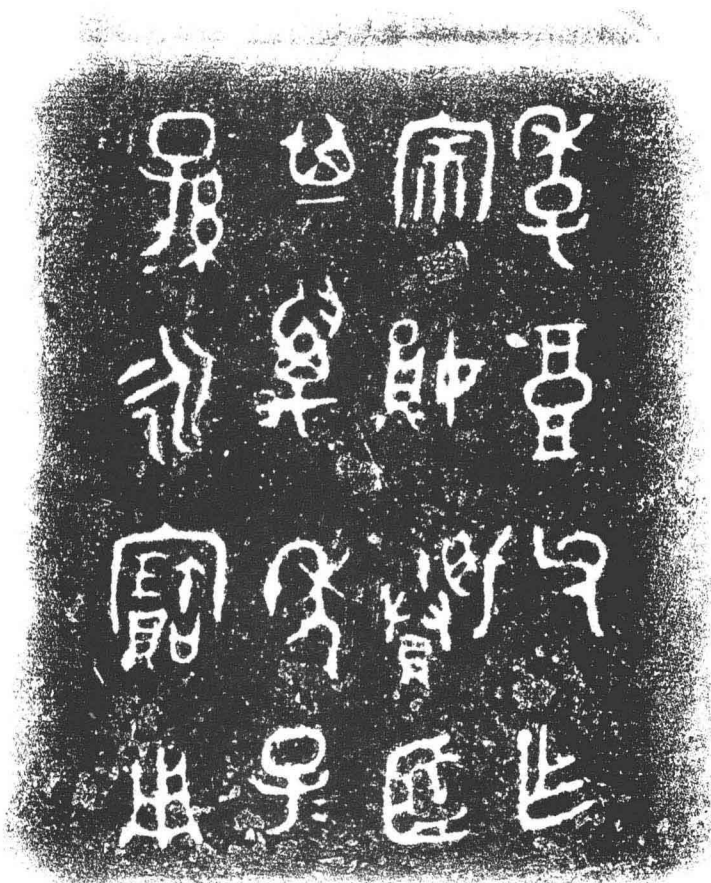 季良父乍
宗娟賸簠
其萬年子=
孫永寶用